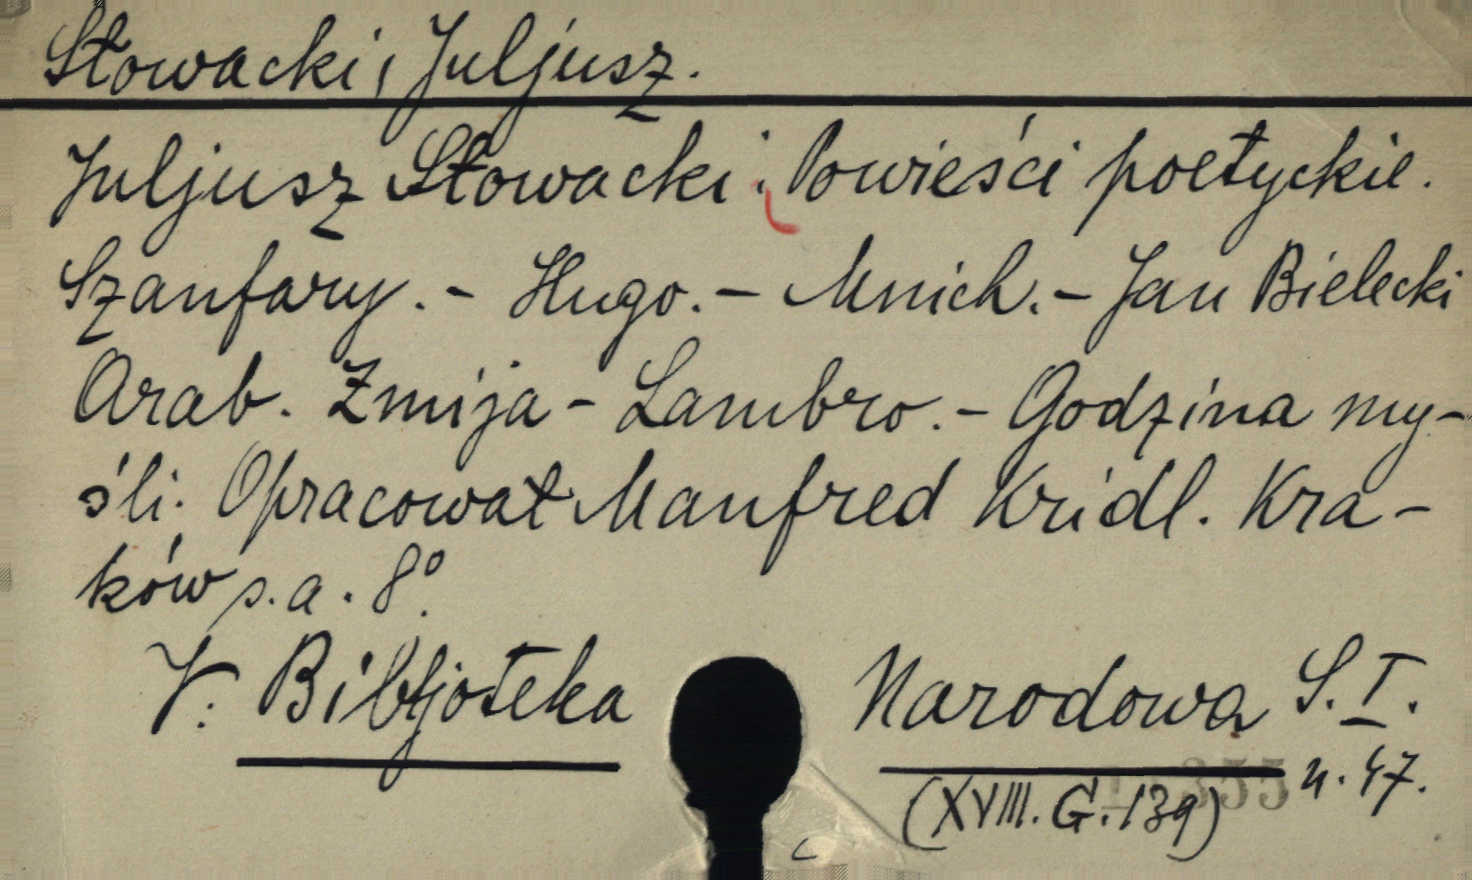 Słowacki, Juljusz.
Juljusz Słowacki: Powieści poetyckie.
Szanfary. - Hugo. - Mnich. - Jan Bielecki
Arab. Żmija - Lambro. - Godzina my-
śli. Opracował Manfred Kridl. Kra-
ków s.a. 8°.
V: Bibljoteka Narodowa S. I.
n. 47.
(XVIII. G. 139)